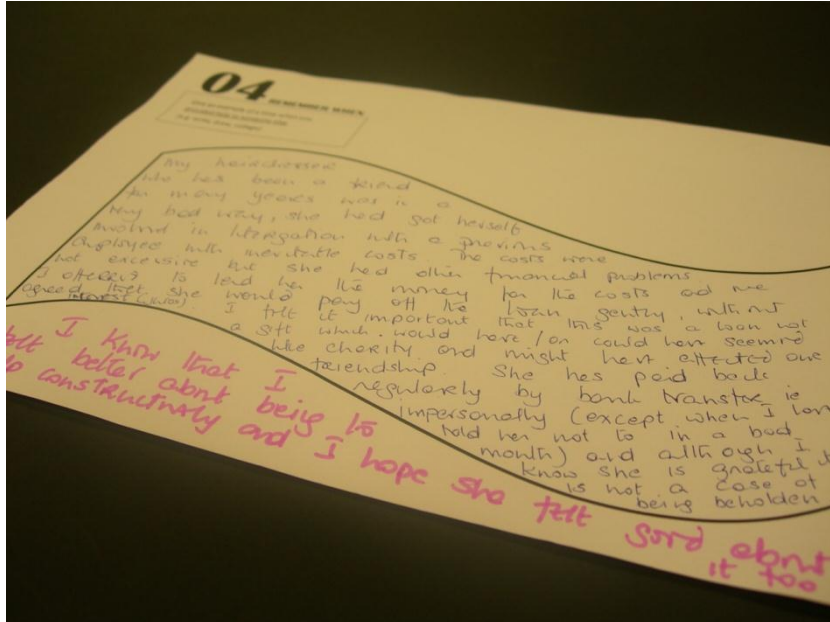 04 REMEMBER WHEN
My hairdresser
who has been a friend
for many years was in a
very bad way, she had got herself
involved in litigation with a previous
employee with inevitable costs. The costs were
not excessive but she had other financial problems
I offered to lend her the money for the costs and we
agreed that she would pay off the loan gently, without
interest
I felt it important that this was a loan not
a gift which would have / or could have seemed
like charity and might have effected our
friendship. She has paid back
regularly by bank transfer ie
impersonally (except when I
told her not to in a bad
month) and although I
know she is grateful
is not a case of
being beholden
I know that I
felt better about being
to constructively and I hope she felt good about
it too